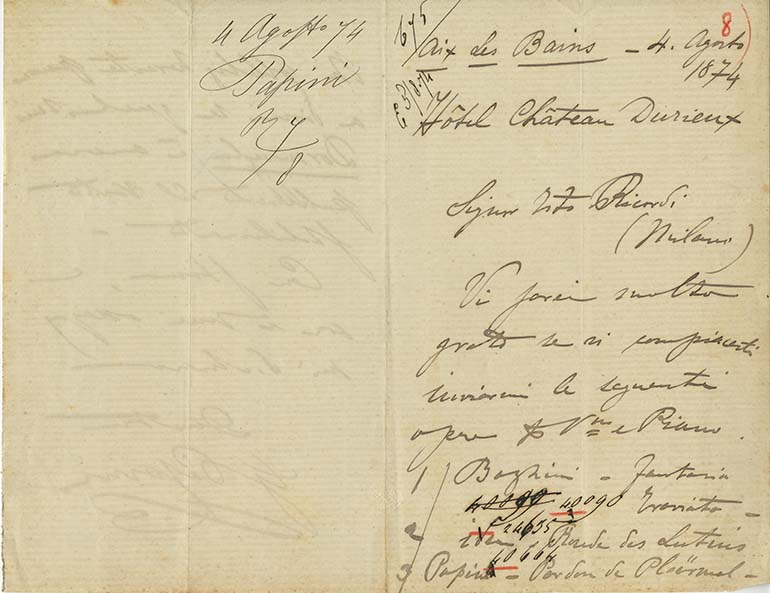 4 Agosto 74
Papini
R 7/8
675
8
Aix Les Bains - 4. Agosto
1874
Hôtel Château Durieux
Signor Tito Ricordi
(Milano)
Vi sarei molto
grato se vi compiaceste
inviarmi le seguenti
opere p Vno e Piano.
1/ Bazzini - Fantasia
40090 Traviata -
24655
2/ idem - Ronde des Lutins
40664
3/ Papini - Pardon de Ploërmel -